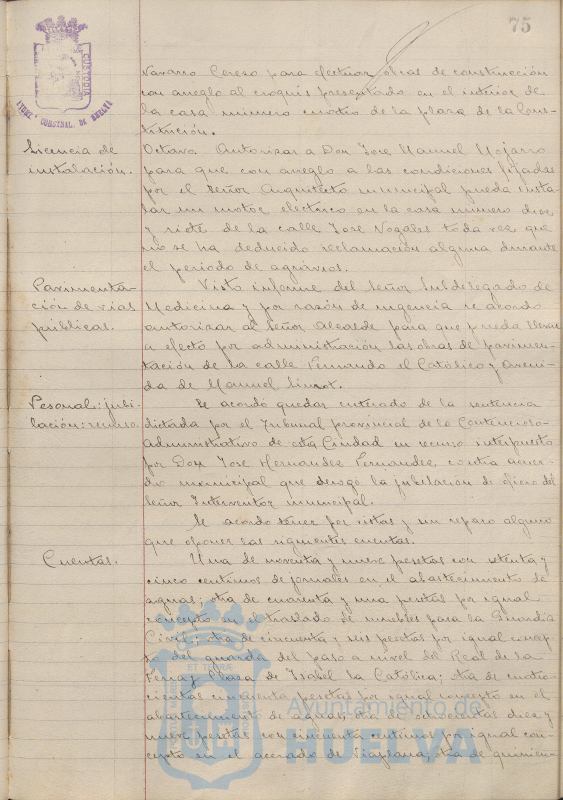 75
CUSTODIA
AYUNT. CONSTNAL. DE HUELVA
Navarro Cerezo para efectuar obras de construcción
con arreglo al croquis presentado en el interior de
la casa número cuatro de la plaza de la Cons-
titución.
Licencia de
instalación.
Octavo. Autorizar a Don José Manuel Mojarro
para que con arreglo a las condiciones fijadas
por el Señor Arquitecto municipal pueda insta-
lar un motor eléctrico en la casa número diez
y siete de la calle José Nogales toda vez que
no se ha deducido reclamación alguna durante
el periodo de agravios.
Pavimenta-
ción de vías
públicas.
Visto informe del Señor Subdelegado de
Medicina y por razón de urgencia se acordó
autorizar al Señor Alcalde para que pueda llevar
a efecto por administración las obras de pavimen-
tación de la calle Fernando el Católico y Aveni-
da de Manuel Siurot.
Pesonal: jubi-
lación: recurso.
Se acordó quedar enterado de la sentencia
dictada por el Tribunal provincial de lo Contencioso-
administrativo de esta Ciudad en recurso interpuesto
por Don José Hernandez Fernandez, contra acuer-
do municipal que denegó la jubilación de oficio del
Señor Interventor municipal.
Se acordó tener por vistas y sin reparo alguno
que oponer las siguientes cuentas.
Cuentas.
Una de noventa y nueve pesetas con setenta y
cinco centimos de jornales en el abastecimiento de
aguas; otra de cuarenta y una pesetas por igual
concepto en el traslado de muebles para la Guardia
Civil; otra de cincuenta y seis pesetas por igual concep-
to del guarda del paso a nivel del Real de la
Feria y Plaza de Isabel la Católica; otra de cuatro-
cientas cincuenta pesetas por igual concepto en el
abastecimiento de aguas; otra de ochocientas diez y
nueve pesetas con cincuenta centimos por igual con-
cepto en el acerado de Viaplana; otra de quinien-
Ayuntamiento de
HUELVA